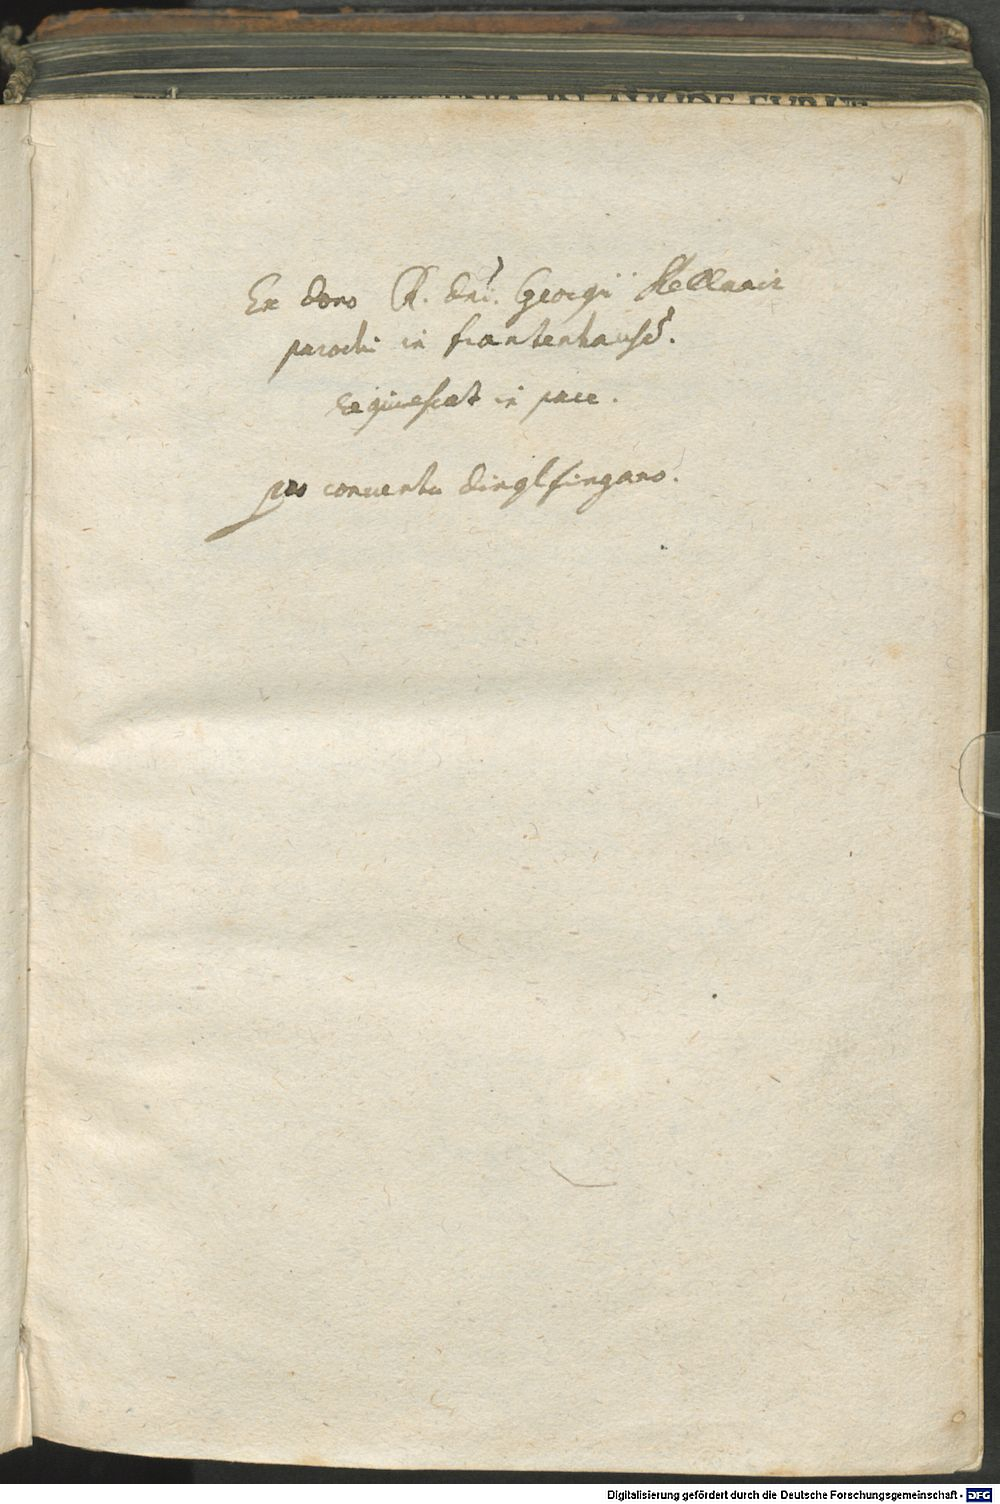 Ex dono R. dni. Georgii Kellmair
parochi in frantenhausē.
reqiuescat in pace.
pro conuentu dinglfingano.
Digitalisierung gefördert durch die Deutsche Forschungsgemeinschaft - DFG